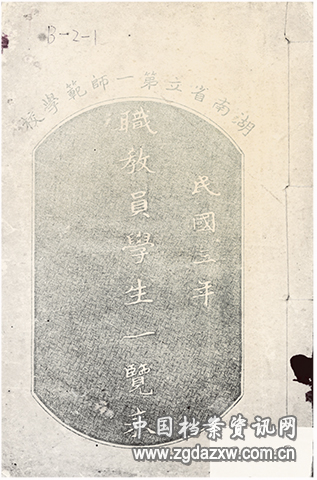 B-2-1
湖南省立第一師範學校
民國五年
職教員學生一覽表
中国档案资讯网
www.zgdazxw.com.cn